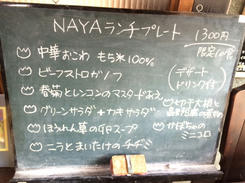 NAYAランチプレート 1300円
限定10食
中華おこわ もち米100%
ビーフストロガノフ
(デザート
ドリンク付き)
春菊とレンコンのマスタードあえ
グリーンサラダ+カキサラダ
切干大根と
煮
ほうれん草の
かぼちゃの
ミニコロ
ニラとまいたけのチヂミ